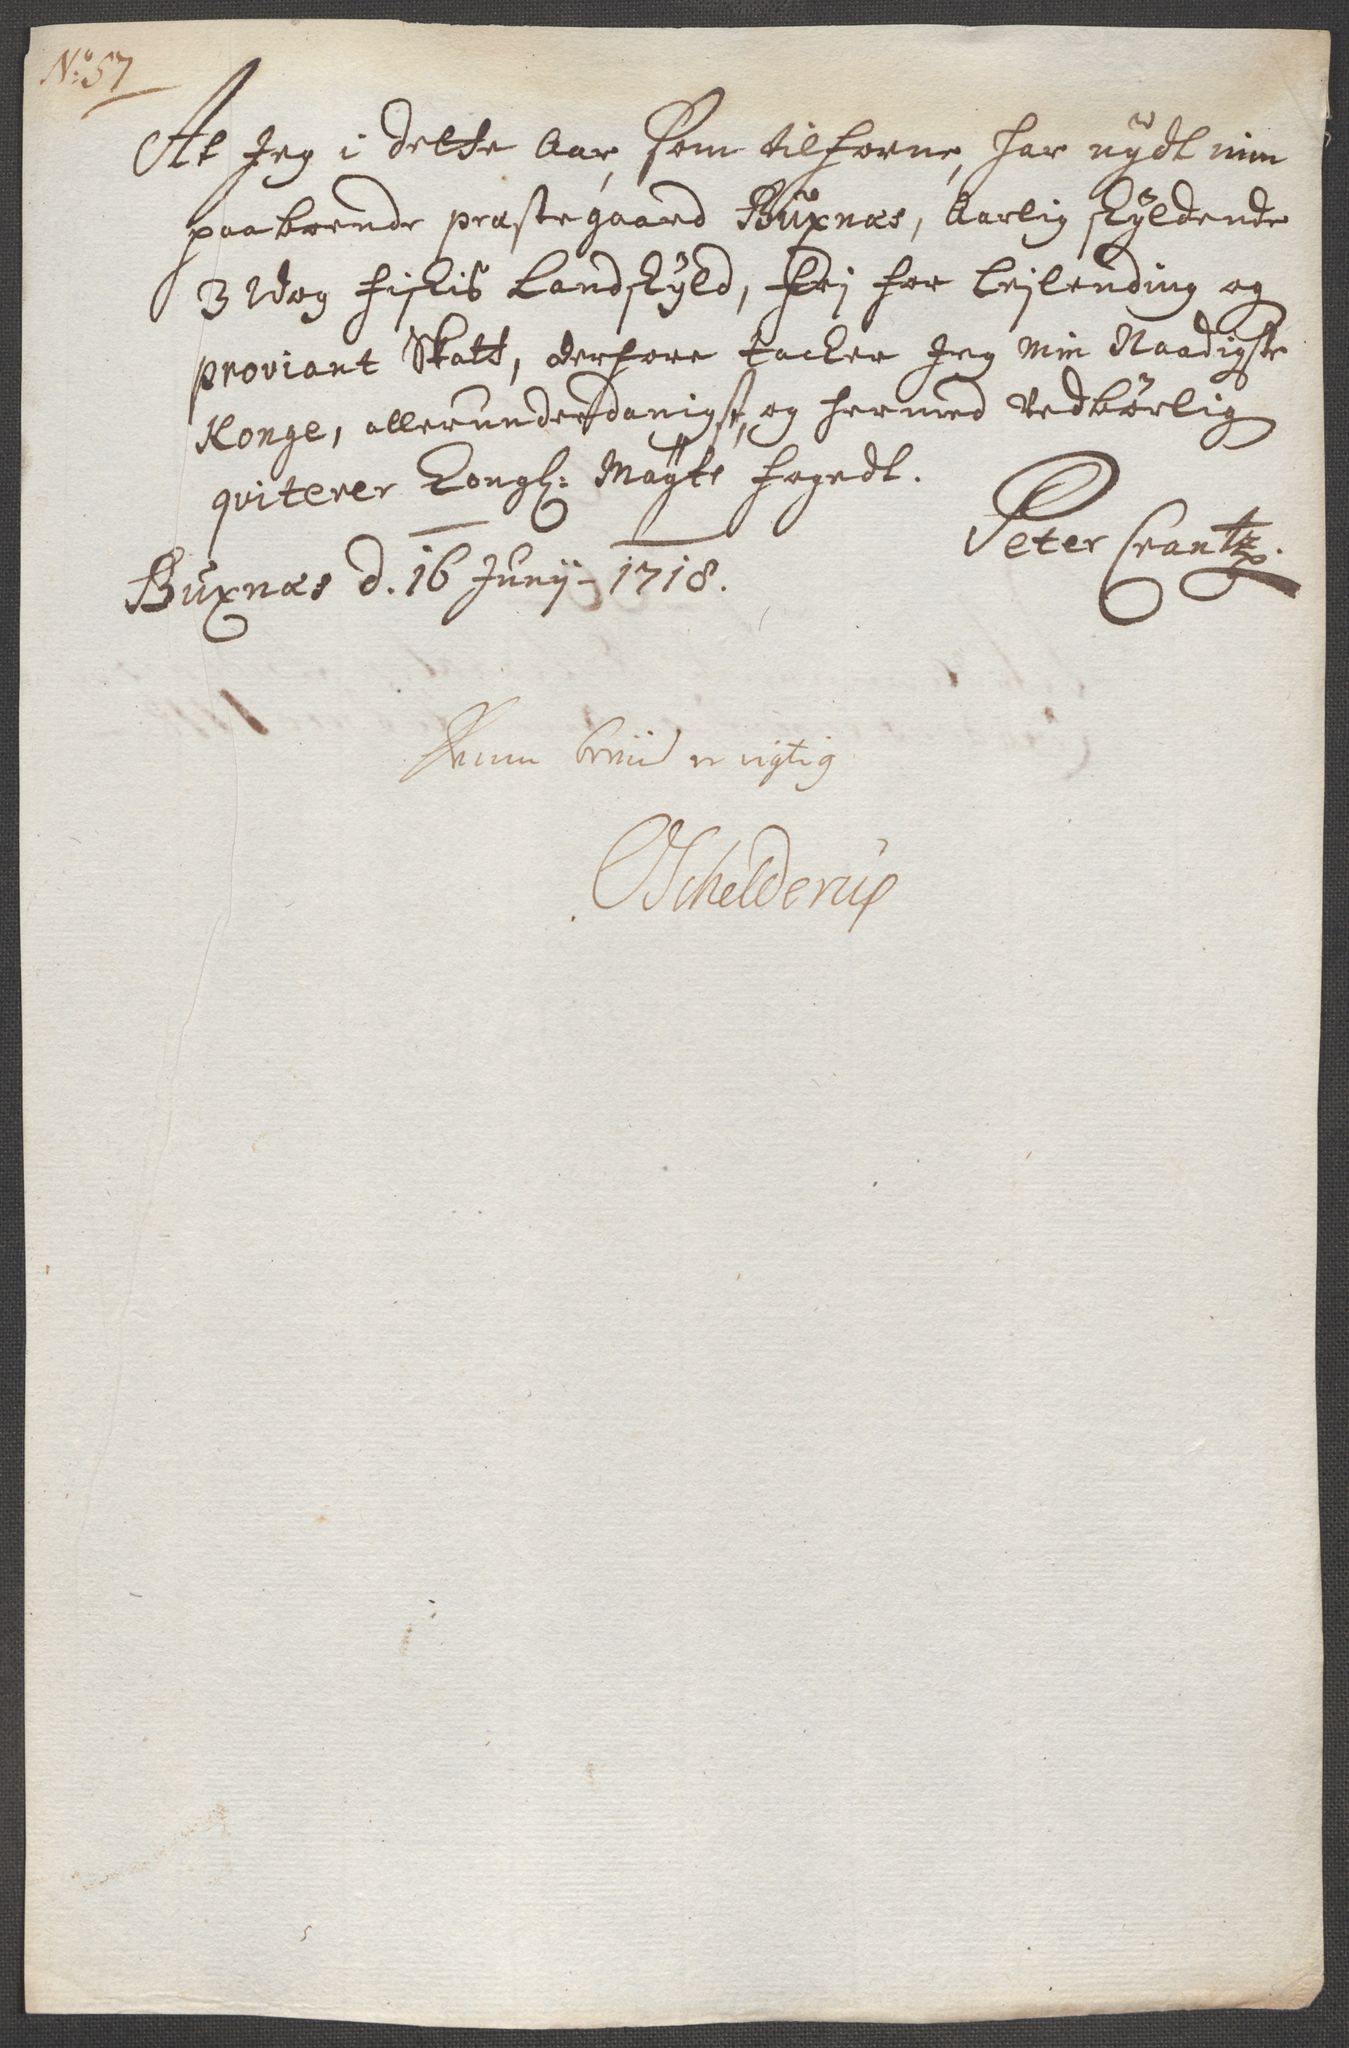 No: 57
At Jeg i dette Aar, som tilforne, har nydt min
paaboende præstegaard Buxnæs, Aarlig skyldende
3 Wog fiskis Landskyld, frj for Lejlending og
proviant Skatt, derfore tacker Jeg min Naadigste
Konge, allerunderdanigst, og hermed Vedbørlig
qviterer Kongl: Mayts fogedt.
Peter Crantz.
Buxnæs d. 16 Junij 1718.
Denne beviis er rigtig
OSchelderup